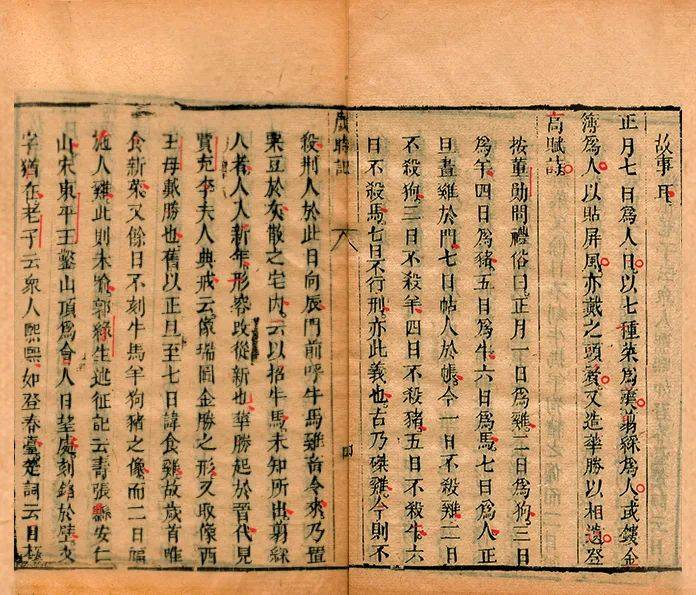 故事耳
正月七日爲人日以七種菜爲羹翦綵爲人或鏤金
簿爲人以貼屏風亦戴之頭鬢又造華勝以相遺登
高賦詩
按董勛問禮俗曰正月一日爲雞二日爲狗三日
爲羊四日爲猪五日爲牛六日爲馬七日爲人正
旦畫雞於門七日帖人於帳今一日不殺雞二日
不殺狗三日不殺羊四日不殺猪五日不殺牛六
日不殺馬七日不行刑亦此義也古乃磔雞今則不
歲時記
八
四
殺荆人於此日向辰門前呼牛馬雞畜令來乃置
粟豆於灰散之宅内云以招牛馬未知所出剪綵
人者人入新年形容改從新也華勝起於晉代見
賈充李夫人典戒云像瑞圖金勝之形又取像西
王母戴勝也舊以正旦至七日諱食雞故歲首唯
食新菜又餘日不刻牛馬羊狗猪之像而二日福
施人雞此則未喻郭緣生述征記云壽張縣安仁
山宋東平王鑿山頂爲會人日望處刻銘於壁文
字猶在老子云衆人熙熙如登春臺楚詞云目極